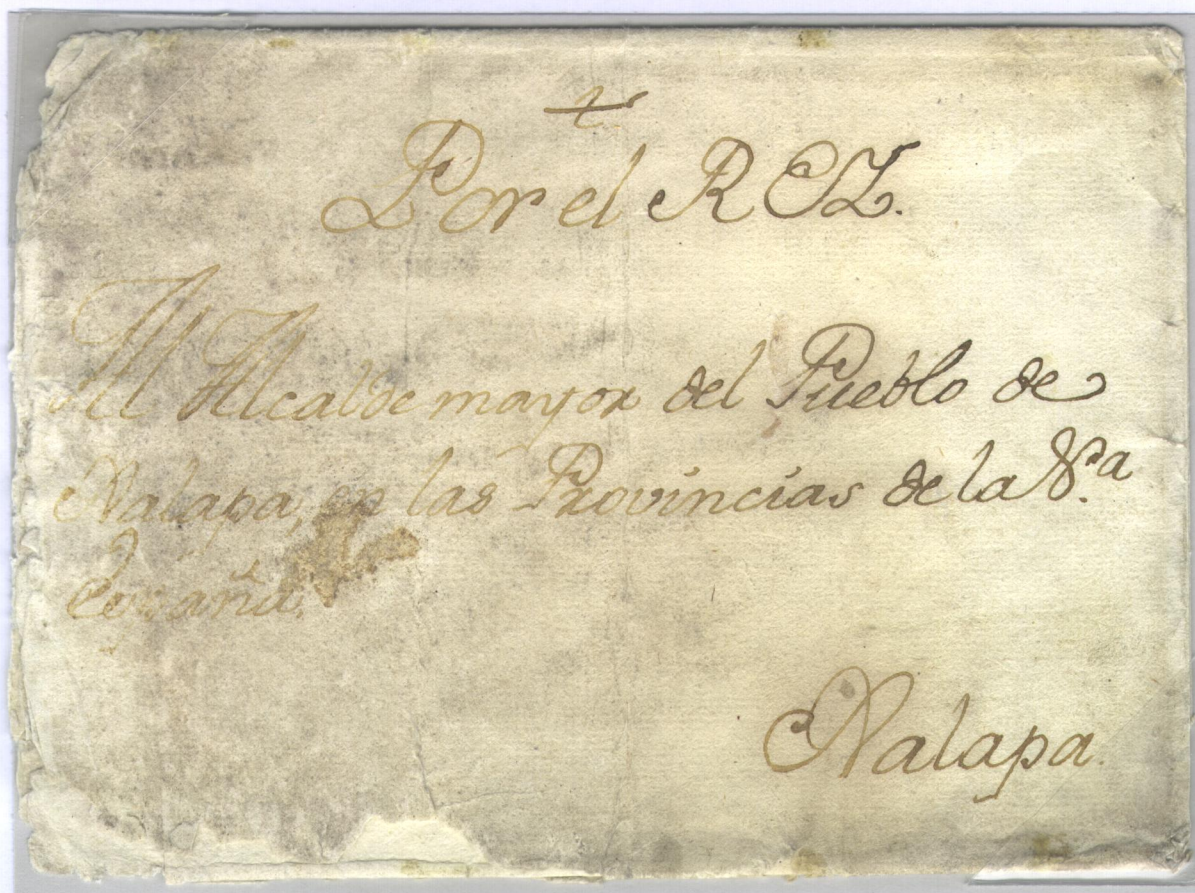 +
Por el REY.
Al Alcalde mayor del Pueblo de
Xalapa, en las Provincias de la N.ª
España.
Xalapa